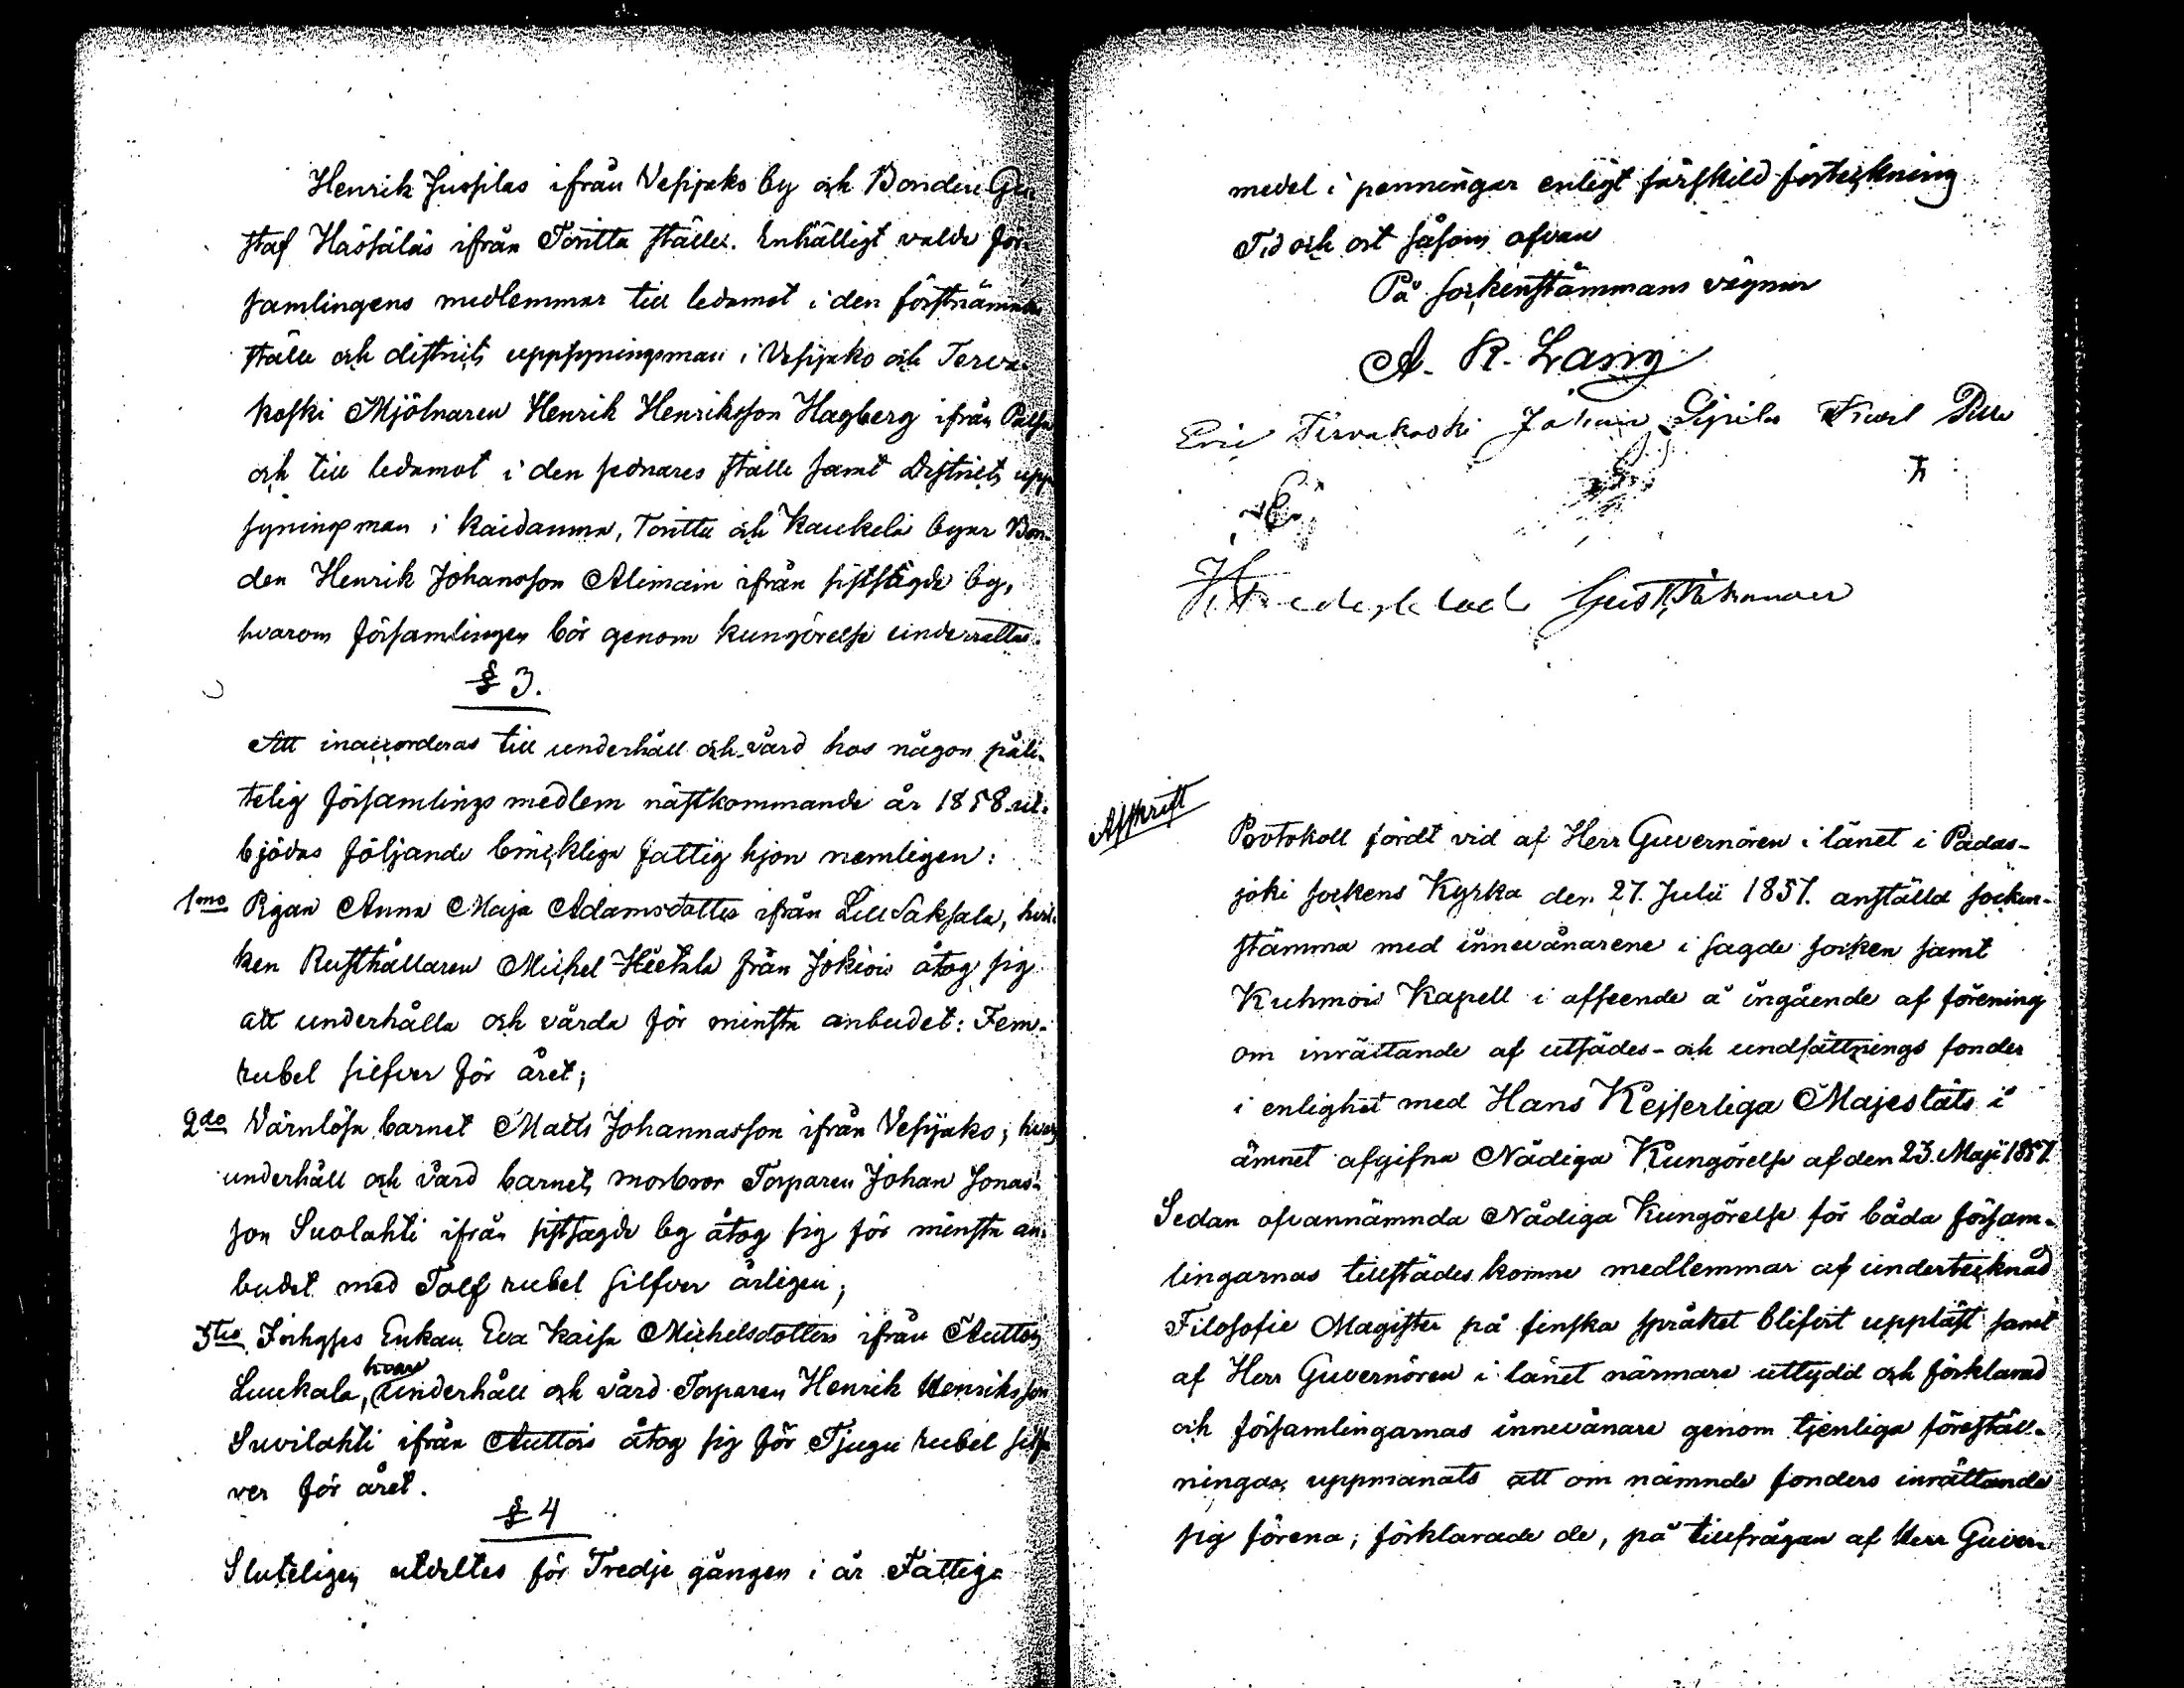 Henrik Jussilas ifrån Vesijako by och Bonden Gu
staf Hassäläs ifrån Toritta ställe. Enhälligt valde för
samlingens medlemmar till ledamot i den förstnämnda
ställe och districts uppsyningsman i Vesijako och Terva
koski Mjölnaren Henrik Henriksson Hagberg ifrån
och till ledamot i den sednares ställe samt Districts upp
syningsman i Kaidanma, Toritta och Kaukela byar Bon
den Henrik Johansson Alimain ifrån sistsagde by,
hvarom församlingen bör genom kungörelse underrättas.
§ 3.
Att inaccorderas till underhåll och vård hos någon påli-
telig församlings medlem nästkommande år 1858 ut-
bjödos följande bräckliga fattig hjon nemligen:
1mo Pigan Anna Maja Adamsdotter ifrån Lill Saksala, hvil-
ken Rusthållaren Michel Heikkla från Jokioi åtog sig
att underhålla och vårda för minsta anbudet: Fem
rubel silfver för året;
2do Värnlösa barnet Matts Johannasson ifrån Vesijako; hvars
underhåll och vård barnets morbror Torparen Johan Jonas-
son Suolahti ifrån sistsagde by åtog sig för minsta an-
budet med Tolf rubel silfver årligen;
3tio Inhyses Enkan Eva Kaisa Michelsdotter ifrån Auttois
hvars
Luukala, underhåll och vård Torparen Henrik Henriksson
Suvilahti ifrån Auttois åtog sig för Tjugu rubel silf
ver för året.
§ 4
Sluteligen utdeltes för Tredje gången i år Fattiga
medel i penningar enligt särskild förteckning
Tid och ort såsom ofvan
På sockenstämmans vägnar
A. R. Lang
Eric Tervakoski Johan Sipila Karl
Afskrift
Protokoll fördt vid af Herr Guvernören i länet i Padas-
joki sockens Kyrka den 27. Julii 1857. anställd socken-
stämma med innevånarene i sagde socken samt
Kuhmois Kapell i afseende å ingående af förening
om inrättande af utsädes- och undsättnings fonder
i enlighet med Hans Kejserliga Majestäts i
ämnet afgifna Nådiga Kungörelse af den 23. Maji 1857.
Sedan ofvannämnda Nådiga Kungörelse för båda försam-
lingarnas tillstädes komne medlemmar af undertecknad
Filosofie Magister på finska språket blifvit uppläst samt
af Herr Guvernören i länet närmare uttydd och förklarad
och församlingarnas innevånare genom tjenliga föreställ-
ningar uppmanats att om nämnde fonders inrättande
sig förena; förklarade de, på tillfrågan af Herr Guver-